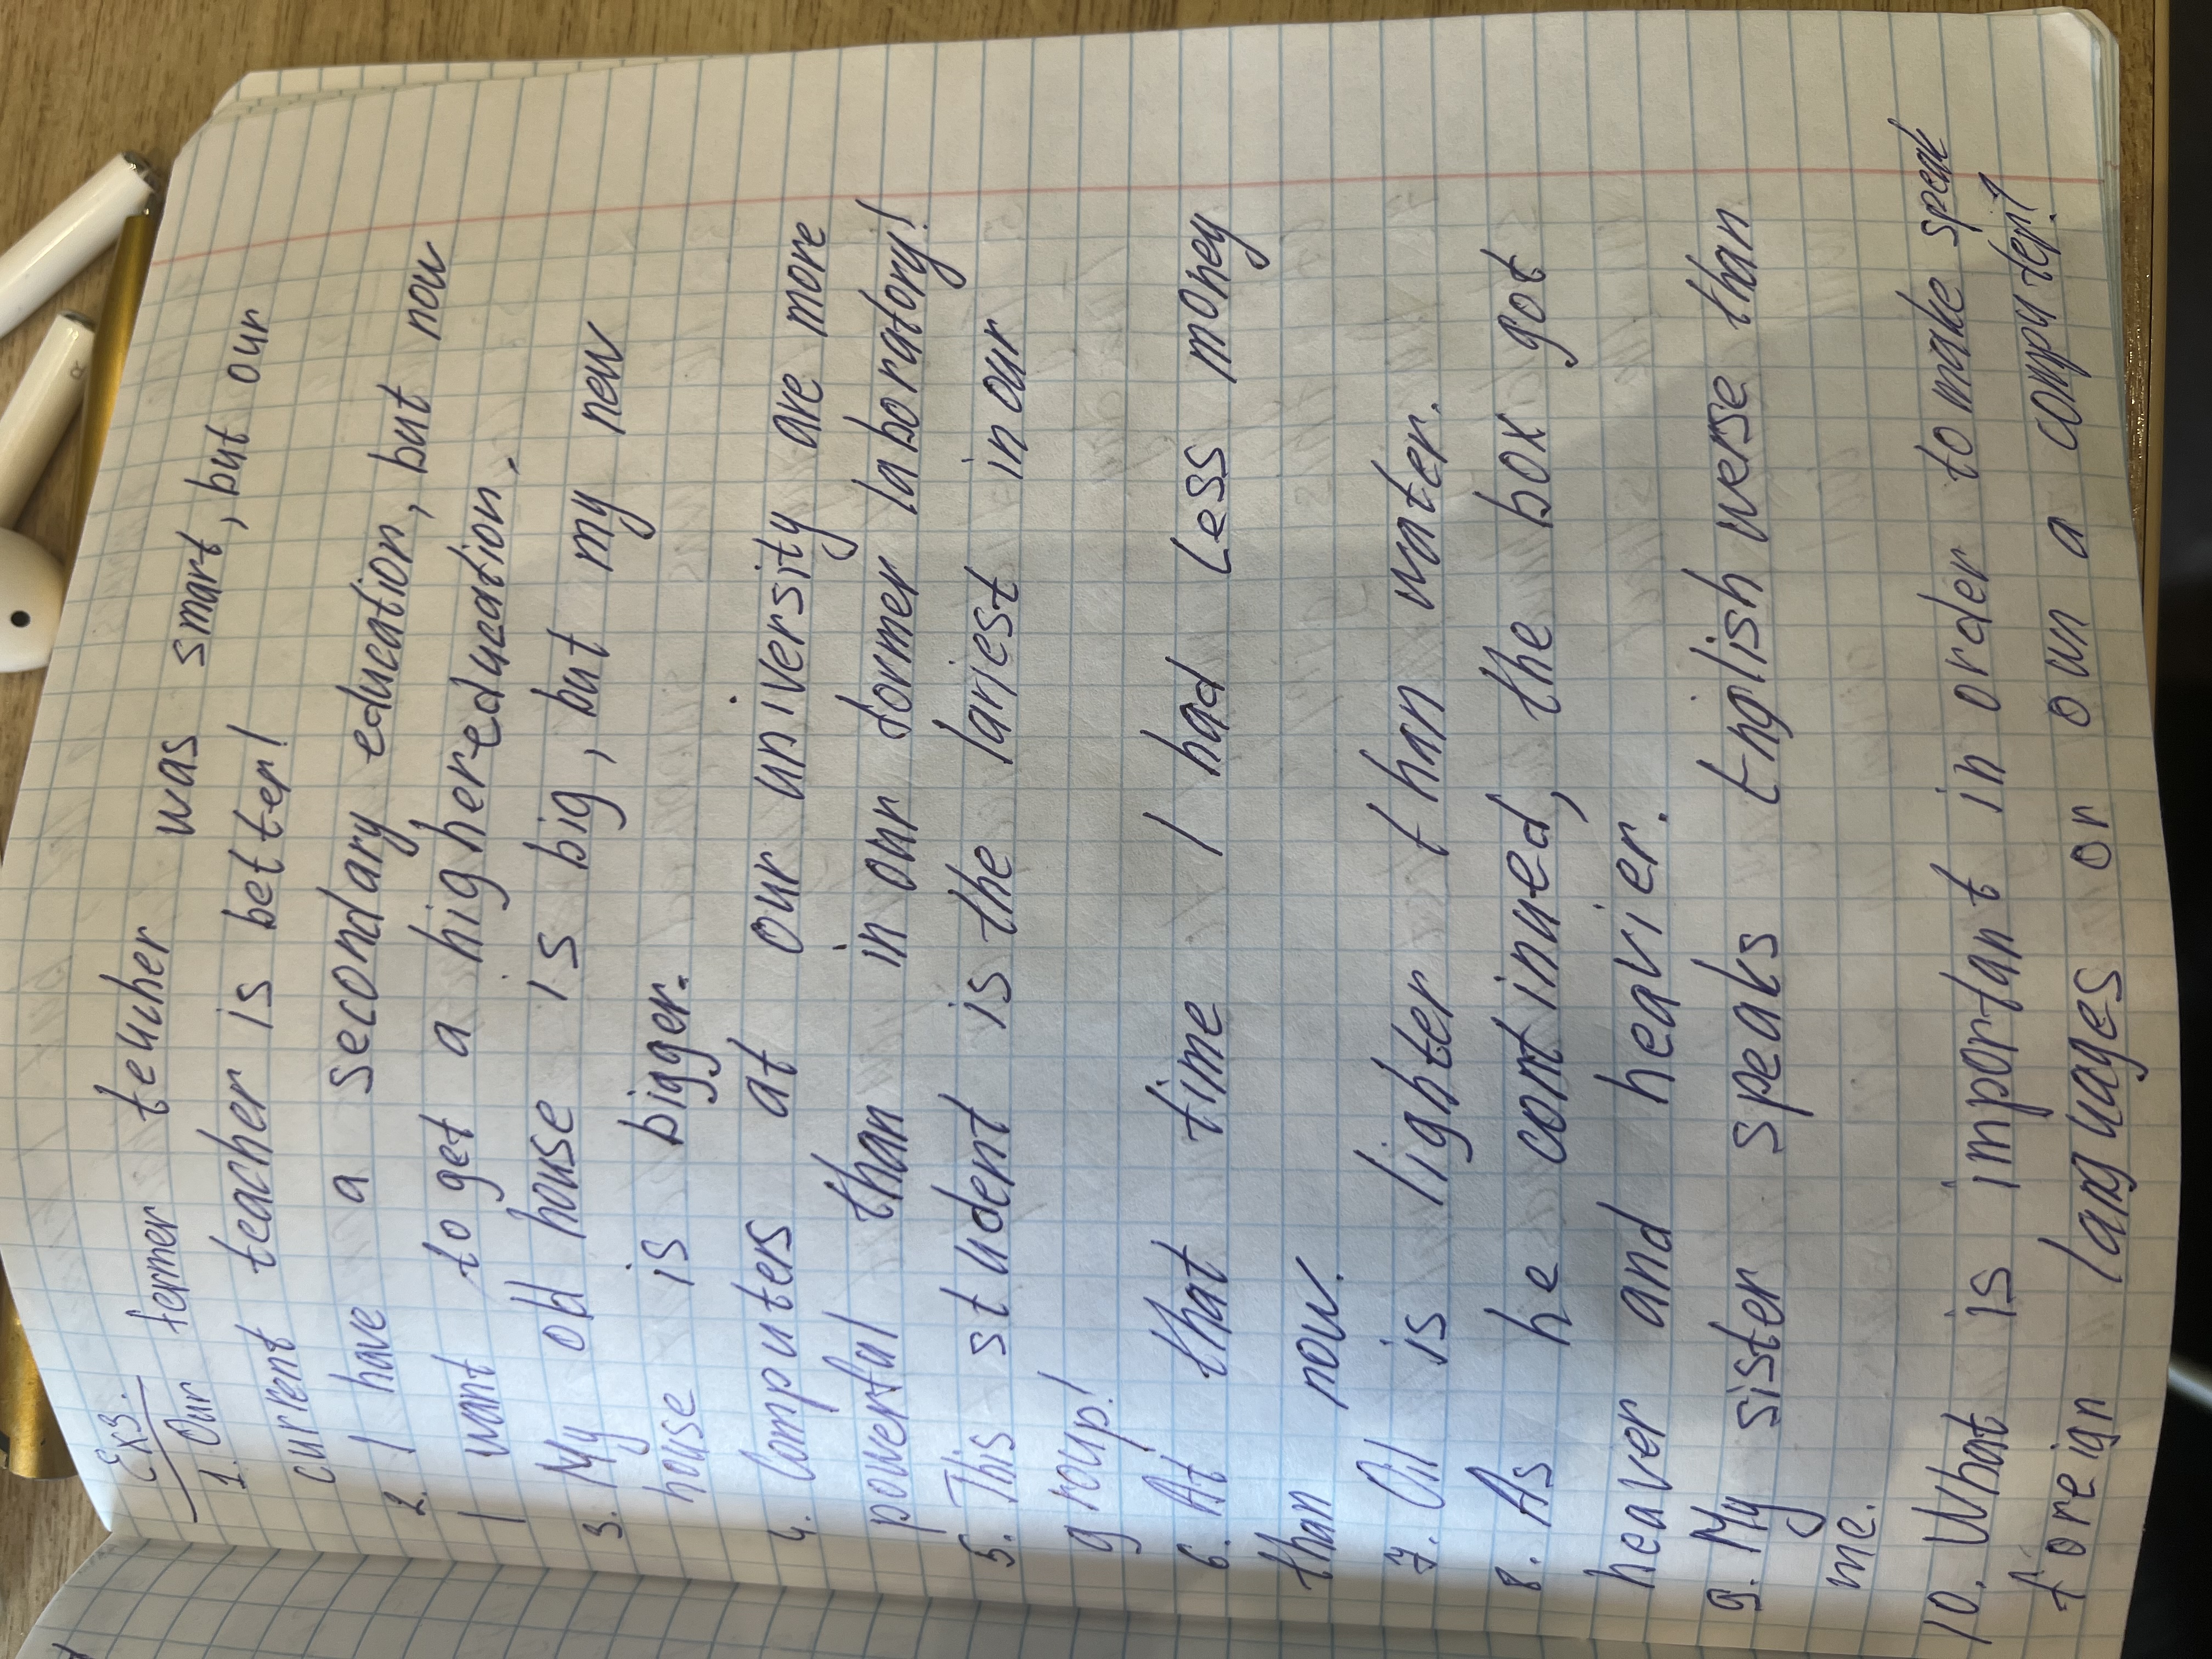 Ex3.
1. Our fermer teacher was smart, but our
current teacher is better!
2. I have a secondary education, but now
I want to get a higher education.
3. My old house is big, but my new
house is bigger.
4. Computers at our university are more
powerful than in our former laboratory!
5. This student is the lariest in our
group!
6. At that time I had Less money
than now.
7. Oil is lighter than water.
8. As he continued, the box got
heaver and heavier.
9. My sister speaks English werse than
me.
10. What is important in order to make speak
foreign languages or own a computer?